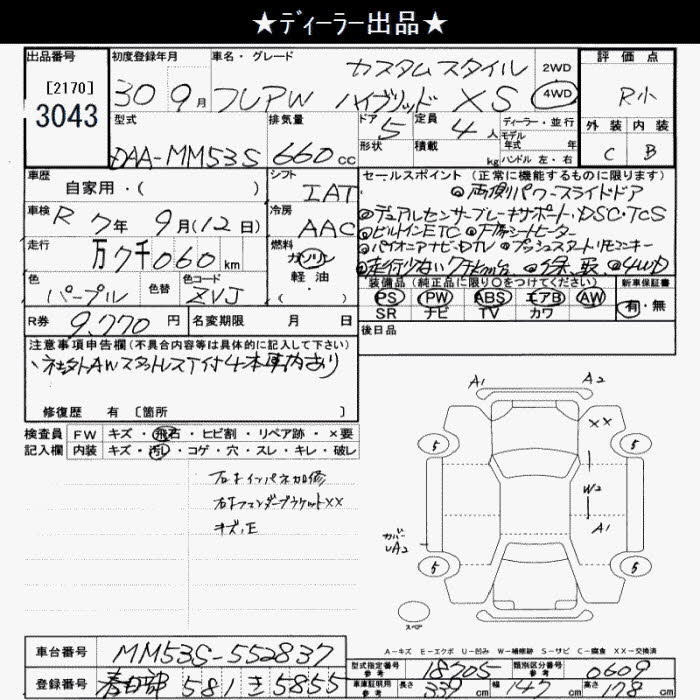 ★ディーラー出品★
出品番号
[2170]
3043
初度登録年月
30 9月
車名・グレード
カスタムスタイル
フレアW ハイブリッド XS
2WD
4WD
評価点
R小
外装 内装
C B
型式
DAA-MM53S
排気量
660cc
ドア
5
形状
定員
4人
積載
kg
ディーラー・並行
モデル
年式 年
ハンドル 左・右
車歴
自家用・( )
シフト
IAT
車検
R 7年 9月(12日)
冷房
AAC
走行
万7千060km
燃料
ガソリン
軽油
・( )
色
パープル
色替
色コード
ZVJ
R券
9,770円
名変期限 月 日
セールスポイント(正常に機能するものに限ります)
◎両側パワースライドドア
◎デュアルセンサーブレーキサポート・DSC・TCS
◎ビルトインETC ◎シートヒーター
◎パイオニアナビ・DTV ◎プッシュスタート・リモコンキー
◎走行少ない7千km台 ◎保、取 ◎4WD
装備品(純正品に限り○をつけてください)
PS PW ABS エアB AW
SR ナビ TV カワ
新車保証書
有・無
後日品
注意事項申告欄(不具合内容等は具体的に記入して下さい)
スタットレスタイヤ付4本車内あり
修復歴 有 [箇所 ]
検査員
記入欄
FW キズ・飛石・ヒビ割・リペア跡・×要
内装 キズ・汚レ・コゲ・穴・スレ・キレ・破レ
右Fインパネ加修
右Fフェンダーブラケット××
キズ、E
A1 A2
××
5 5
W2
A1
カバー
UA2
5 5
スペア
A-キズ E-エクボ U-凹み W-補修跡 S-サビ C-腐食 XX-交換済
車台番号
MM53S-552837
登録番号
春日部 581 き 5855
型式指定番号
参考
18705
類別区分番号
参考
0609
車庫証明用
参考
長さ 339cm
幅 147cm
高さ 178cm